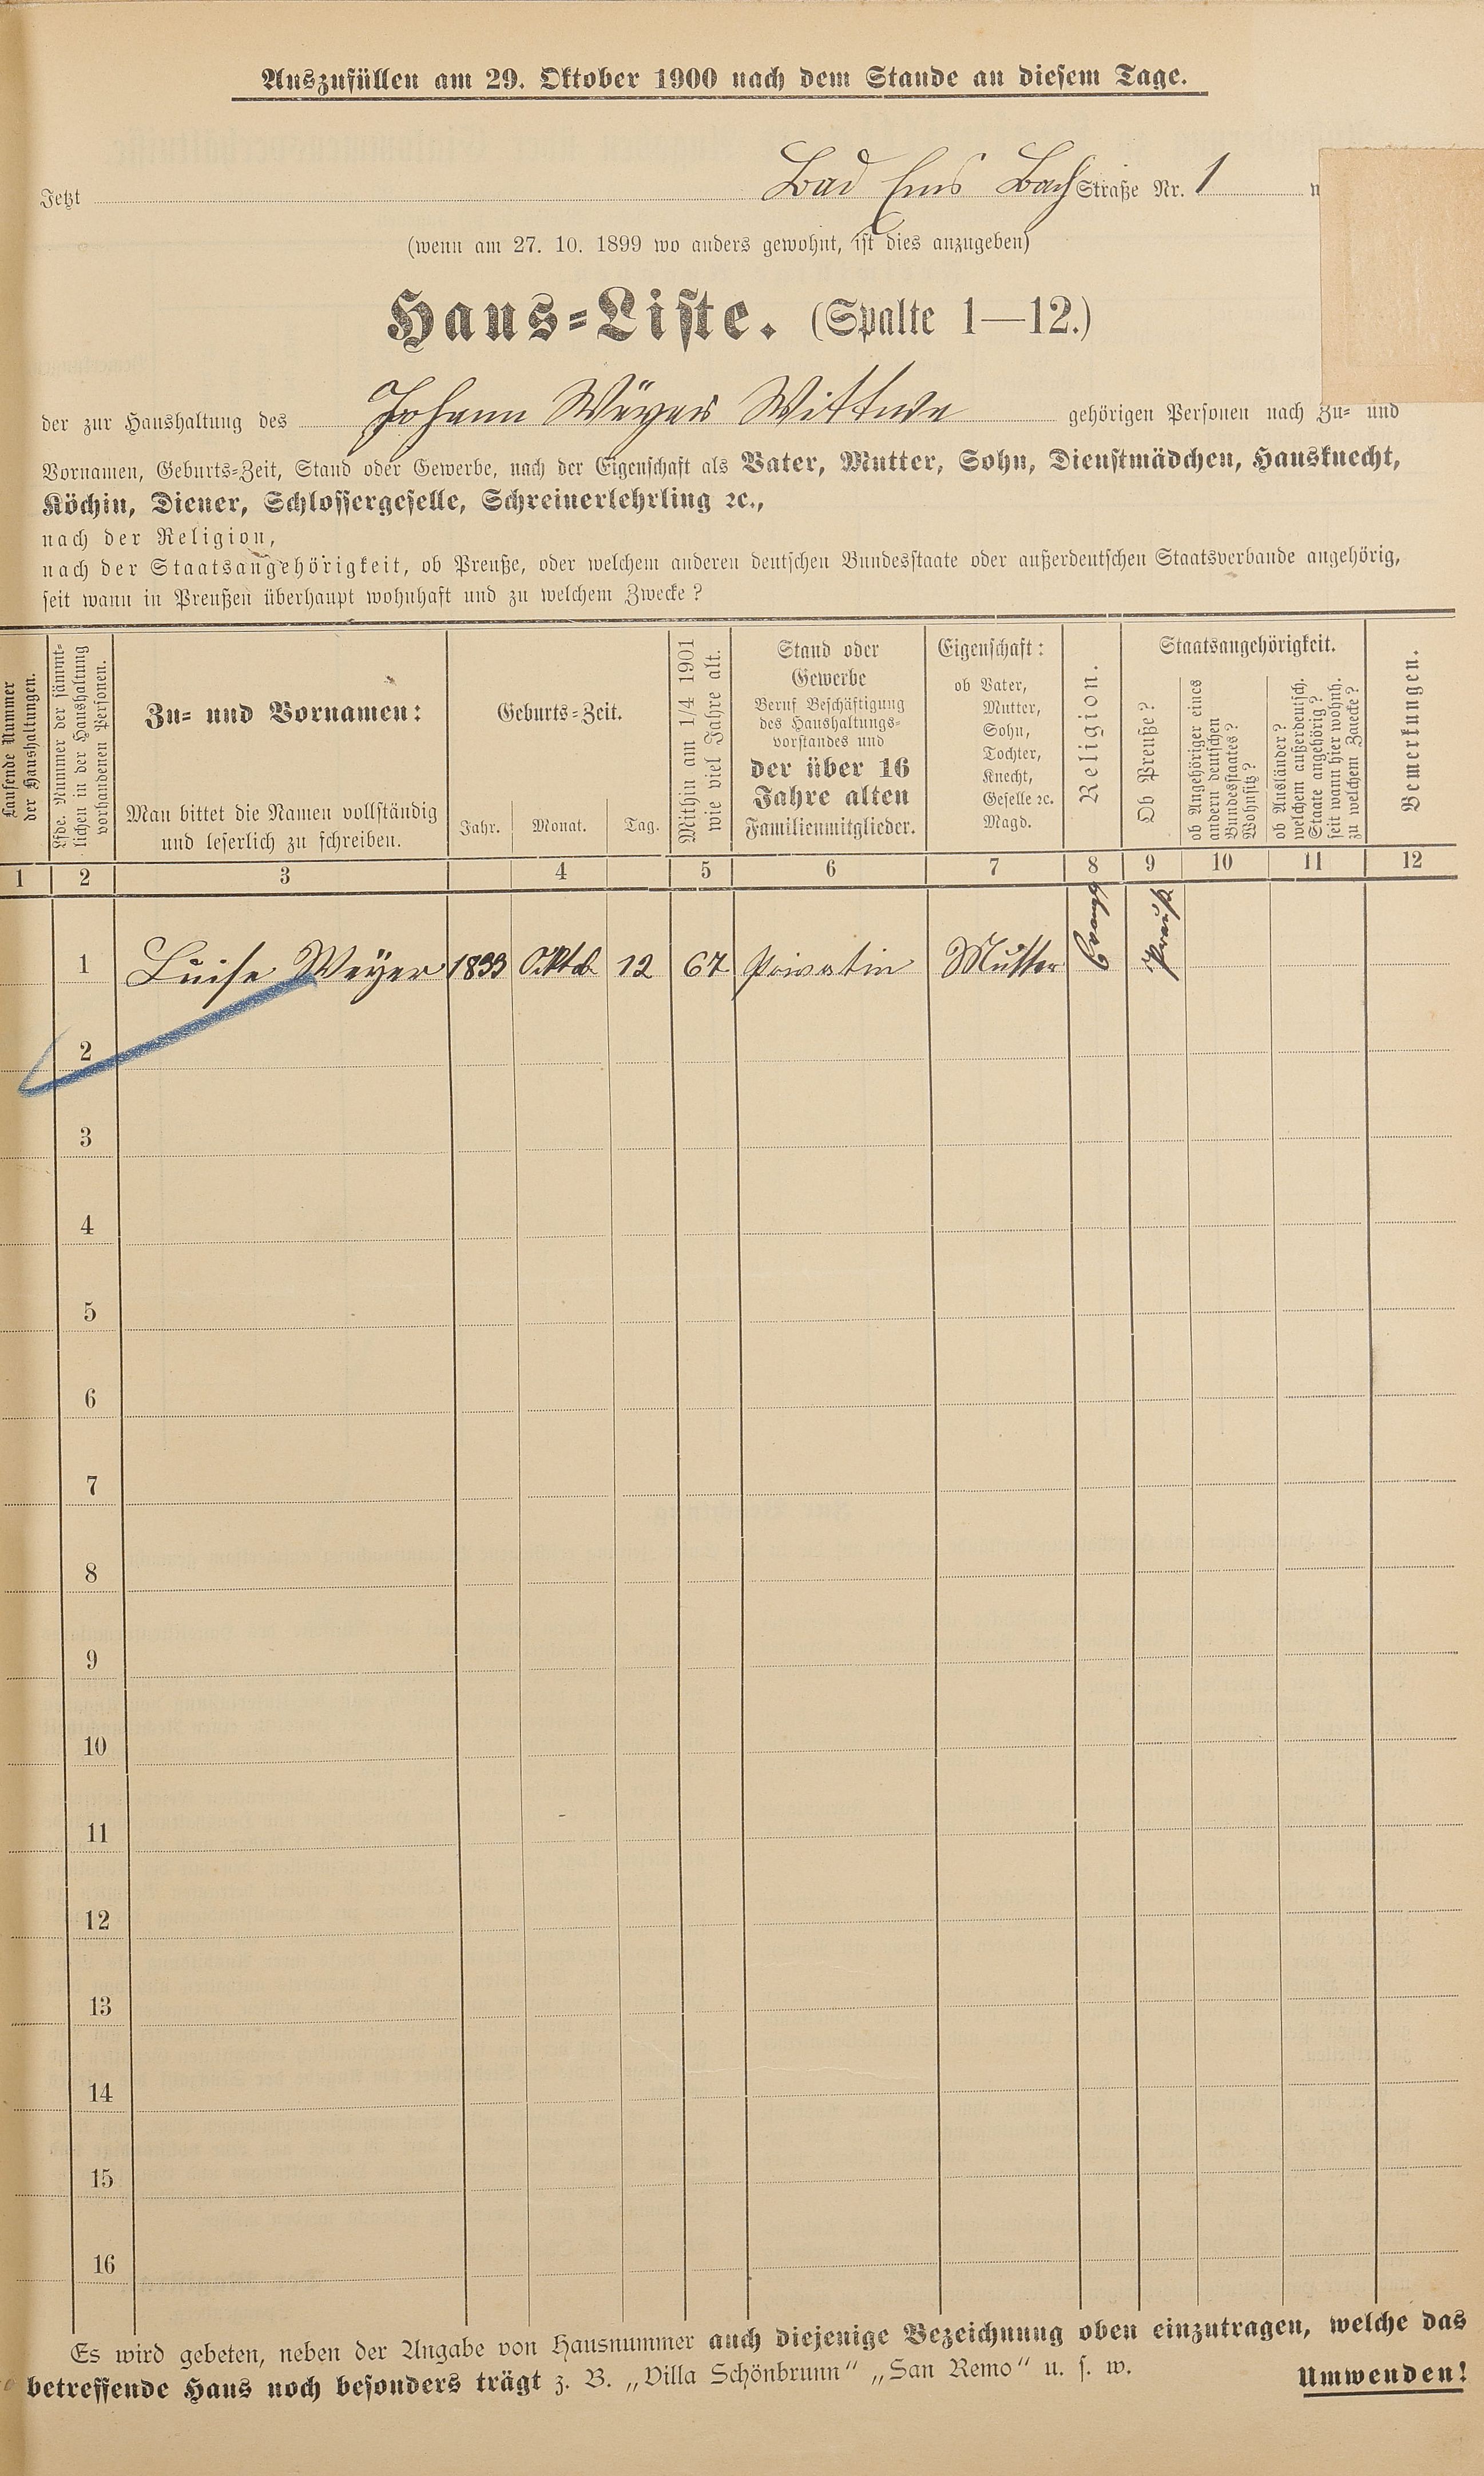 Auszufüllen am 29. Oktober 1900 nach dem Stande an diesem Tage.
Jetzt Bad Ems Bach Straße Nr. 1
(wenn am 27. 10. 1899 wo anders gewohnt, ist dies anzugeben)
Haus=Liste. (Spalte 1—12.)
der zur Haushaltung des Johann Weyer Wittwe gehörigen Personen nach Zu= und
Vornamen, Geburts=Zeit, Stand oder Gewerbe, nach der Eigenschaft als Vater, Mutter, Sohn, Dienstmädchen, Hausknecht,
Köchin, Diener, Schlossergeselle, Schreinerlehrling ꝛc.,
nach der Religion,
nach der Staatsangehörigkeit, ob Preuße, oder welchem anderen deutschen Bundesstaate oder außerdeutschen Staatsverbande angehörig,
seit wann in Preußen überhaupt wohnhaft und zu welchem Zwecke?
Laufende Nummer
der Haushaltungen.
Lfde. Nummer der sämmt=
lichen in der Haushaltung
vorhandenen Personen.
Zu= und Vornamen:
Man bittet die Namen vollständig
und leserlich zu schreiben.
Geburts=Zeit.
Jahr. Monat. Tag.
Mithin am 1/4 1901
wie viel Jahre alt.
Stand oder
Gewerbe
Beruf Beschäftigung
des Haushaltungs=
vorstandes und
der über 16
Jahre alten
Familienmitglieder.
Eigenschaft:
ob Vater,
Mutter,
Sohn,
Tochter,
Knecht,
Geselle ꝛc.
Magd.
Religion.
Staatsangehörigkeit.
Ob Preuße?
ob Angehöriger eines
andern deutschen
Bundesstaates?
Wohnsitz?
ob Ausländer?
welchem außerdeutsch.
Staate angehörig?
seit wann hier wohnh.
zu welchem Zwecke?
Bemerkungen.
1 2 3 4 5 6 7 8 9 10 11 12
1 Luise Weyer 1833 Oktob 12 67 Privatin Mutter Evang Preuß
2
3
4
5
6
7
8
9
10
11
12
13
14
15
16
Es wird gebeten, neben der Angabe von Hausnummer auch diejenige Bezeichnung oben einzutragen, welche das
betreffende Haus noch besonders trägt z. B. „Villa Schönbrunn“ „San Remo“ u. s. w.
Umwenden!